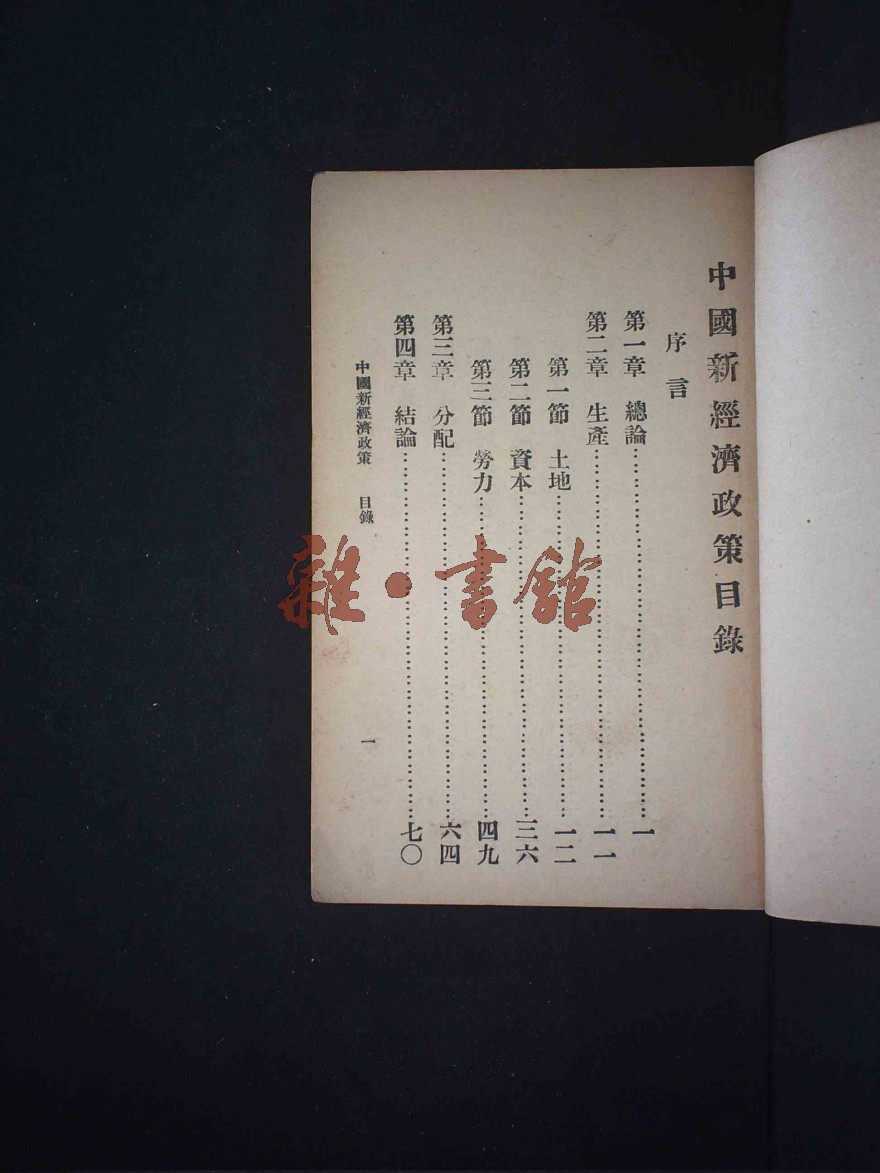 中國新經濟政策目錄
序言
第一章 總論……一
第二章 生產……一一
第一節 土地……一二
第二節 資本……三六
第三節 勞力……四九
第三章 分配……六四
第四章 結論……七〇
中國新經濟政策 目錄 一
雜·書館